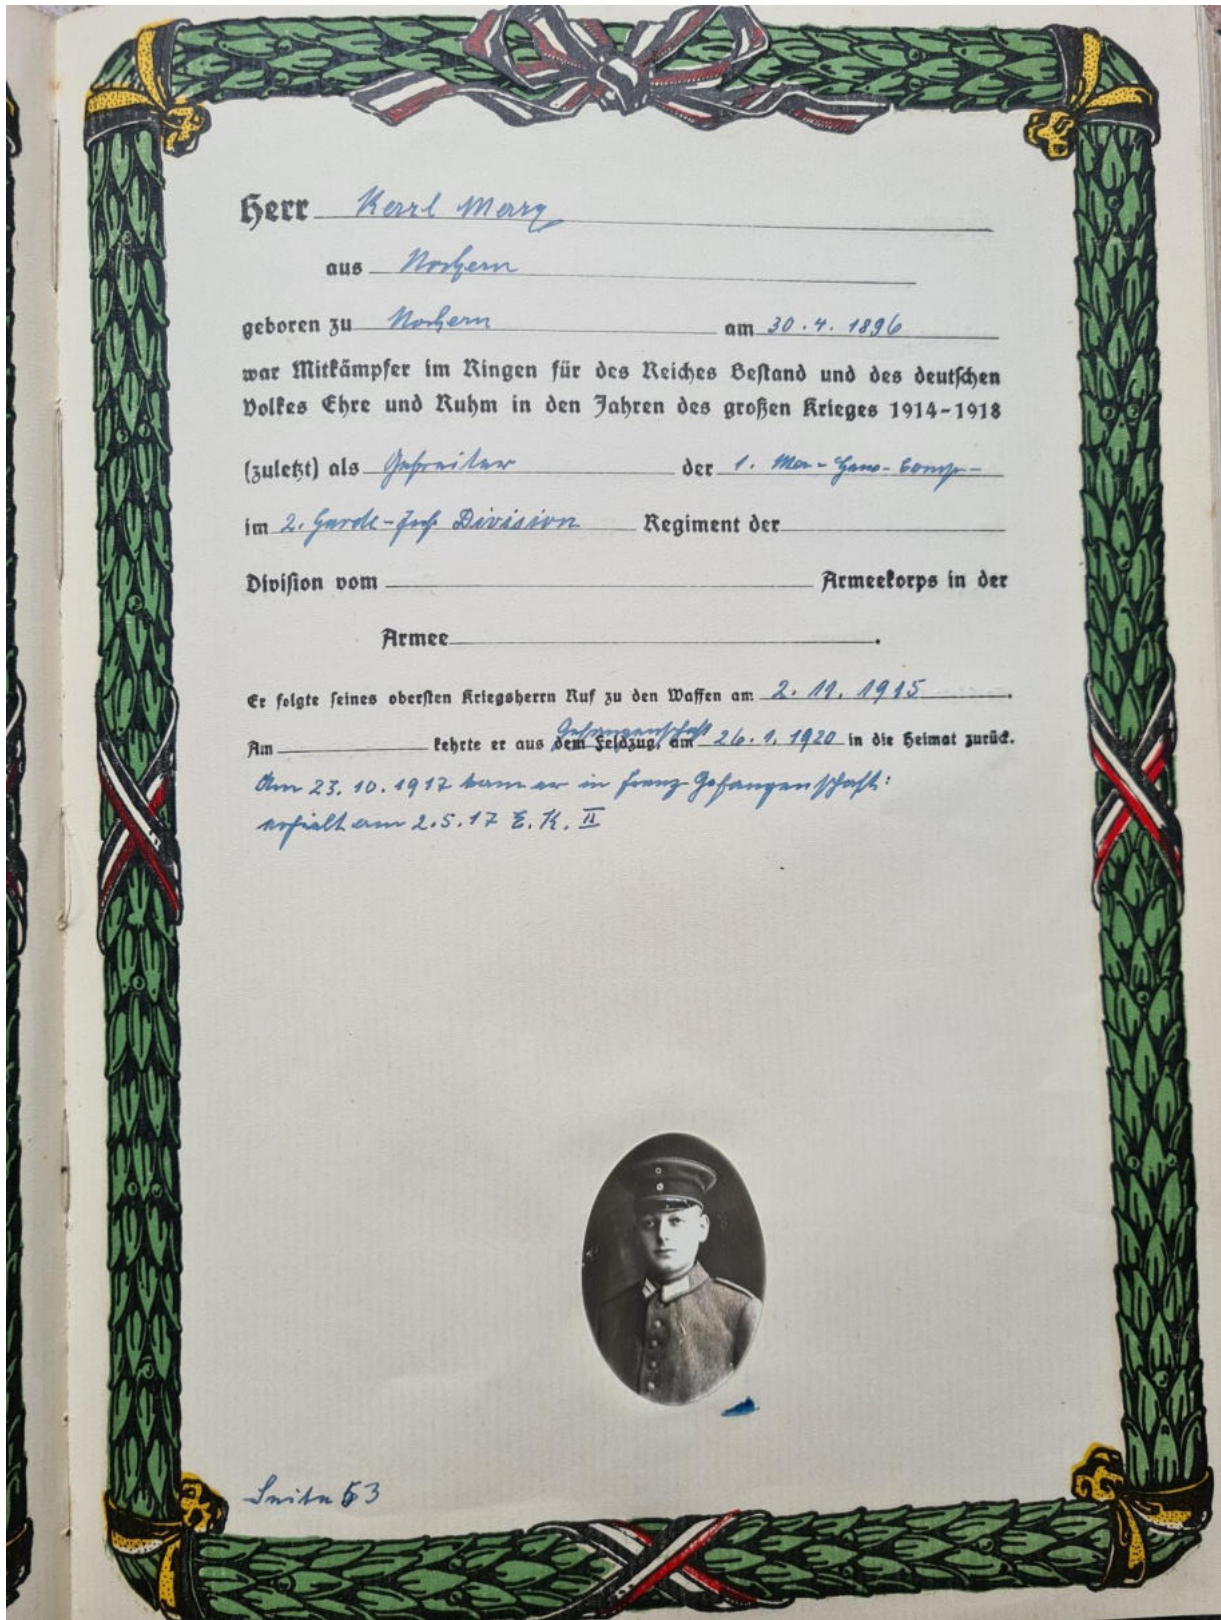 Herr Karl Marx
aus Nochern
geboren zu Nochern am 30.4.1896
war Mitkämpfer im Ringen für des Reiches Bestand und des deutschen
Volkes Ehre und Ruhm in den Jahren des großen Krieges 1914-1918
(zuletzt) als Gefreiter der 1.
im 2. Garde-Inf Division Regiment der
Division vom Armeekorps in der
Armee .
Er folgte seines obersten Kriegsherrn Ruf zu den Waffen am 2.11.1915.
Gefangenschaft
Am kehrte er aus dem Feldzug, am 26.1.1920 in die Heimat zurück.
Am 23.10.1917 kam er in franz Gefangenschaft:
erhielt am 2.5.17 E.K. II
Seite 53